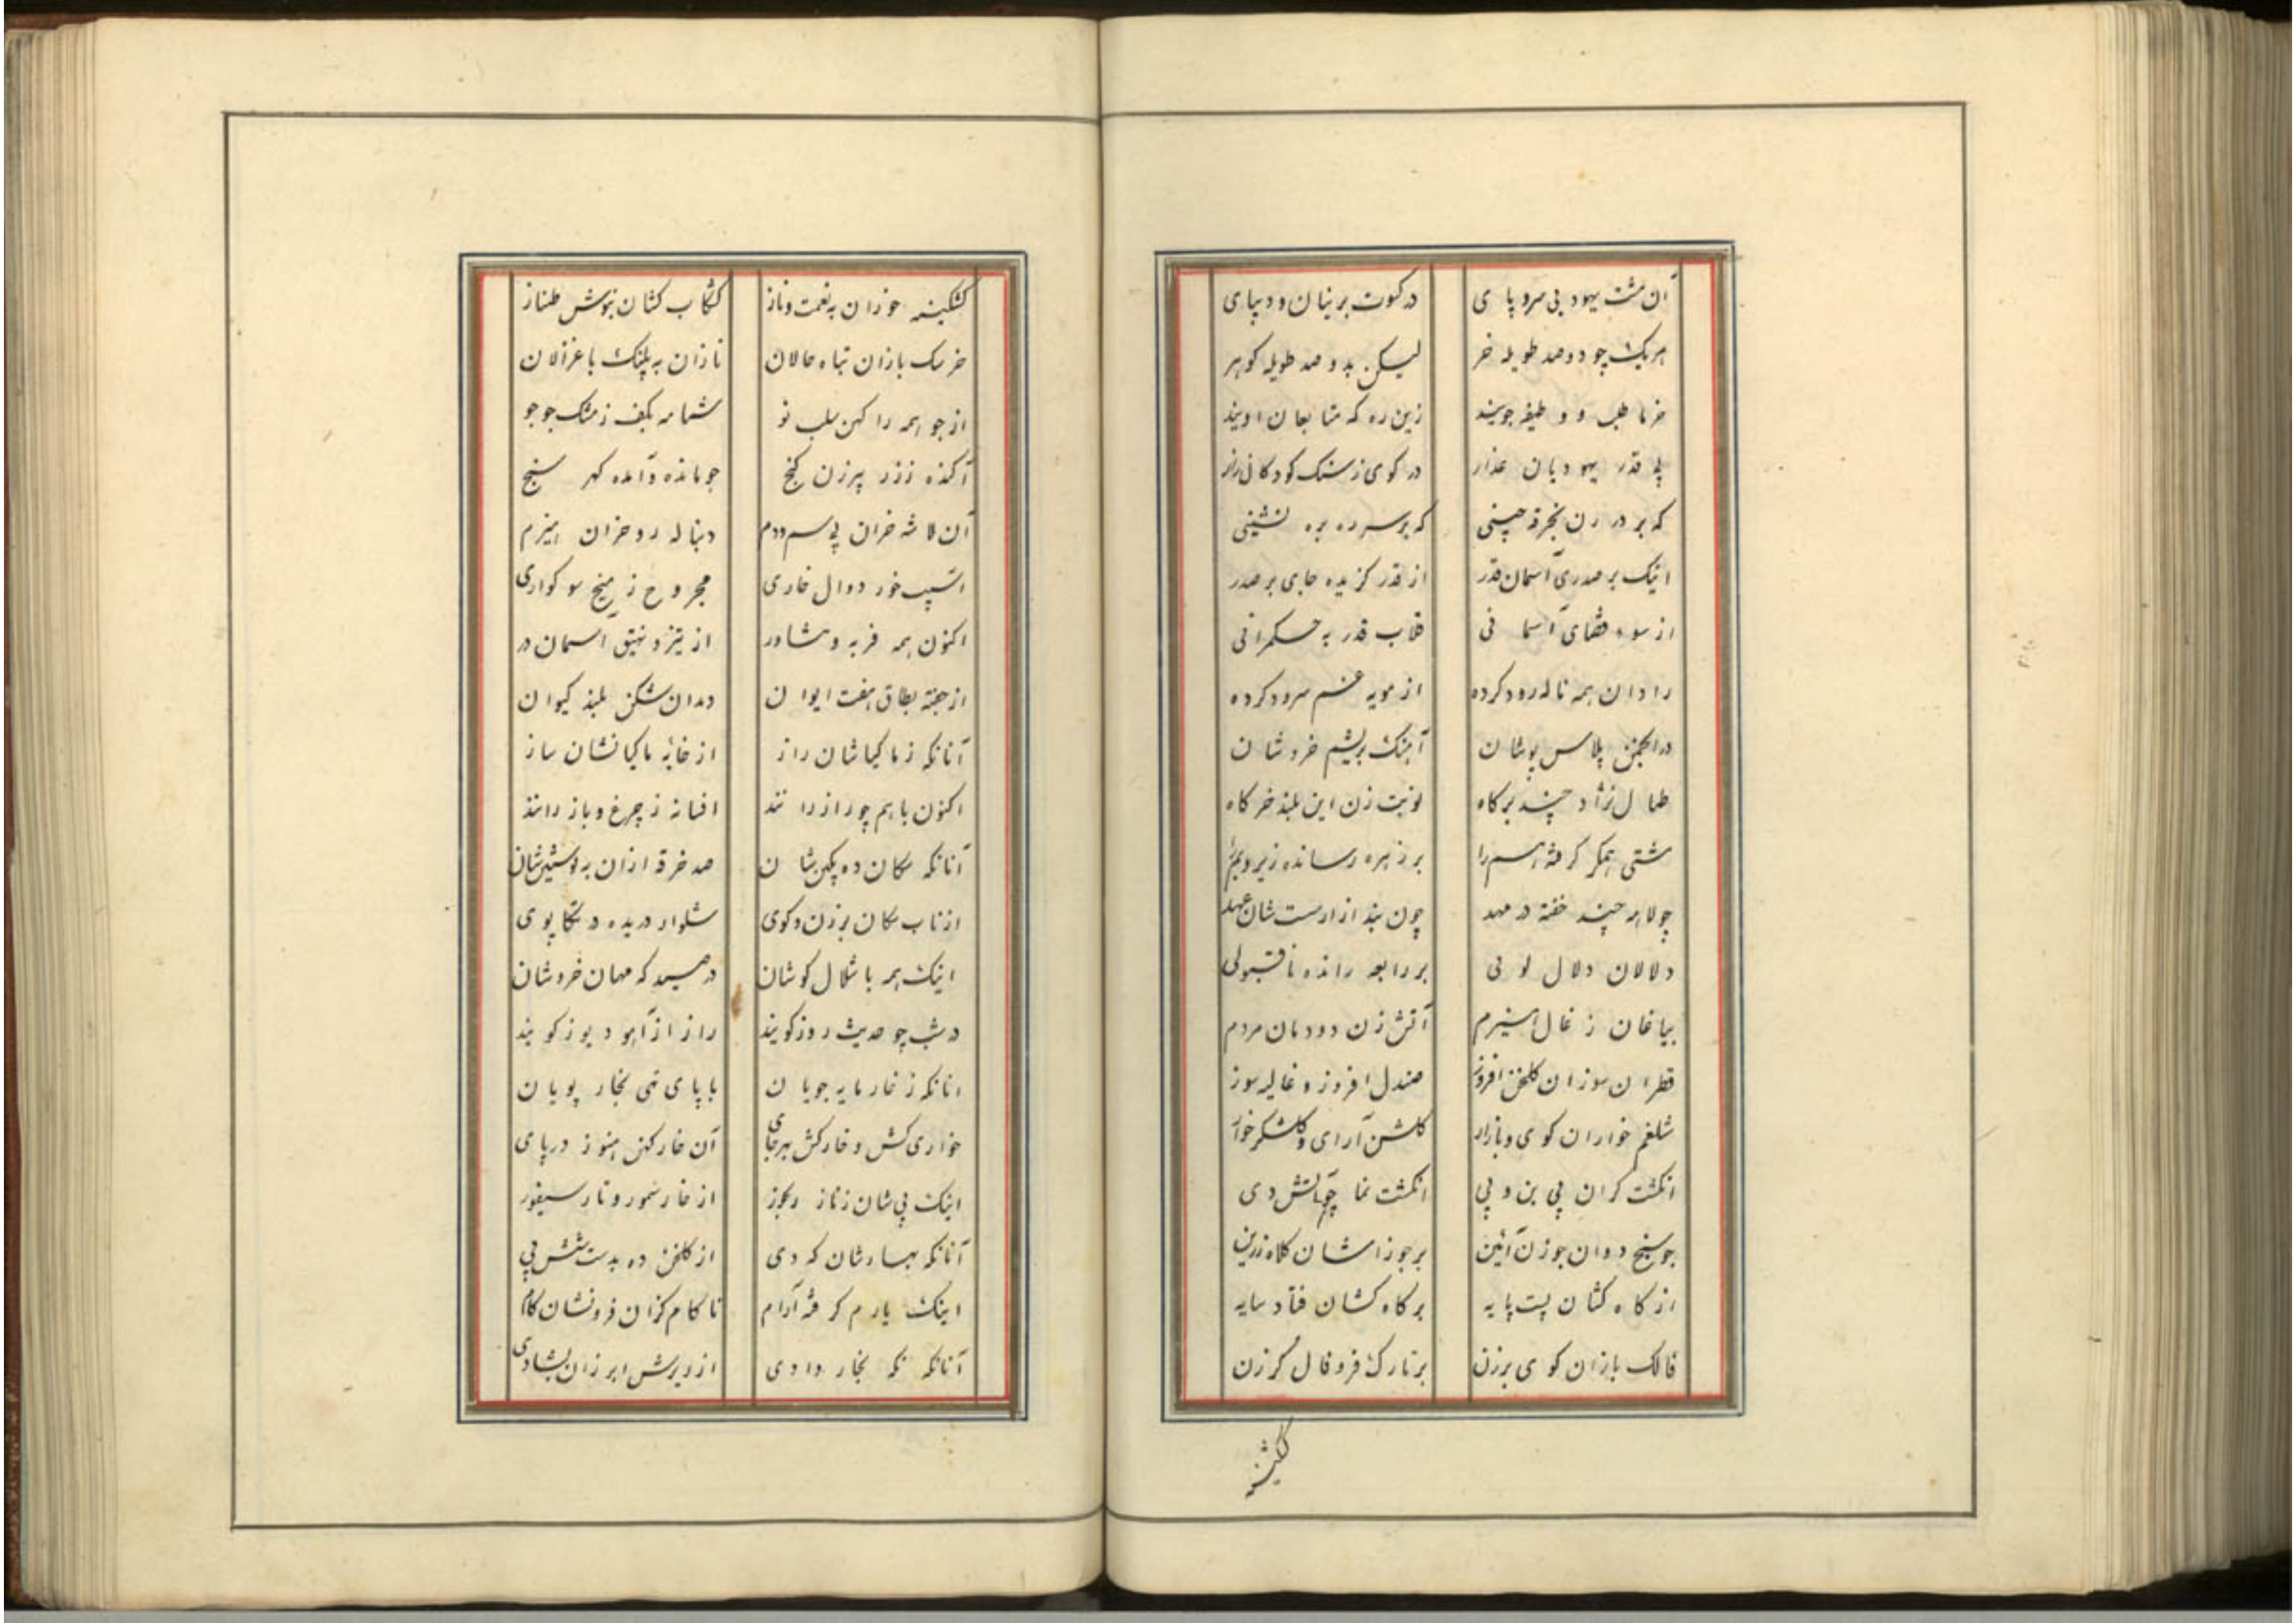 آن مشت یهود بی سرو پای در کسوت پرنیان و دیبای
هریک چو دوصد طویله خر لیکن بدوصد طویله کوهر
خرما طلب و وظیفه جویند زین ره که متابعان اویند
در کوی زسنک کودکانی
که بر سر ره بره نشینی
اینک بر صدری آسمان قدر از قدر کزیده جای بر صدر
از سوء قضای آسمانی قلاب قدر به حکمرانی
رادان همه ناله رود کرده از مویه غم سرود کرده
در انجمن پلاس پوشان آهنک بریشم خروشان
طبال نژاد چند برکاه نوبت زن این بلند خرکاه
مشتی همکر کرفته اسم را بر زهره رسانده زیر و بم را
جولاهه چند خفته در مهد چون بند ازار سست شان عهد
دلالان دلال لولی بر رابعه رانده ناقبولی
آتش زن دودمان مردم
قطران سوزان کلخن افروز صندل افروز و غالیه سوز
شلغم خواران کوی و بازار کلشن آرای و کلشکر خوار
انکشت کران بی بن و پی انکشت نما چو آتش دی
جوسنج دوان جوزن آئین بر جوزاشان کلاه زرین
از کاه کشان پست پایه بر کاه کشان فتاد سایه
فالک بازان کوی برزن برتارک فرو فال کرزن
کشکینه
کشکینه خوران به نعمت و ناز کشکاب کشان نوش طناز
خرسک بازان تباه حالان نازان به پلنک با غزالان
از جو همه را کهن سلب نو شمامه بکف ز مشک جو جو
آکنده ز زر پرزن کنج جو مانده و آمده کهر سنج
آن لاشه خران بی سم و دم دنباله رو خران هیزم
اسپ خور دوال خاری مجروح ز میخ سوکواری
اکنون همه فربه و شاور از تیز و نهیق آسمان در
از جفته بطاق هفت ایوان دندان شکن بلند کیوان
آنانکه زماکیانشان راز از خایه ماکیانشان ساز
اکنون باهم چو راز رانند افسانه ز چرغ و باز رانند
آنانکه سکان ده یکین شان صد خرقه ازان به پوستین شان
از ناب سکان برزن و کوی شلوار دریده در تکاپوی
اینک همه با شکال کوشان در صید که مهان خروشان
در شب چو حدیث روز کویند راز از آهو و یوز کویند
انانکه ز خار مایه جویان با پای تهی بخار پویان
خواری کش و خارکش بهر جای آن خار کهن هنوز در پای
اینک پی شان ز ناز از خار سمور و نار سیفور
آنانکه بهاءشان که دی از کلخن ده بدست شش پی
اینک یارم کرفته آرام ناکام کزان فرونشان کام
آنانکه نکه بخار دادی